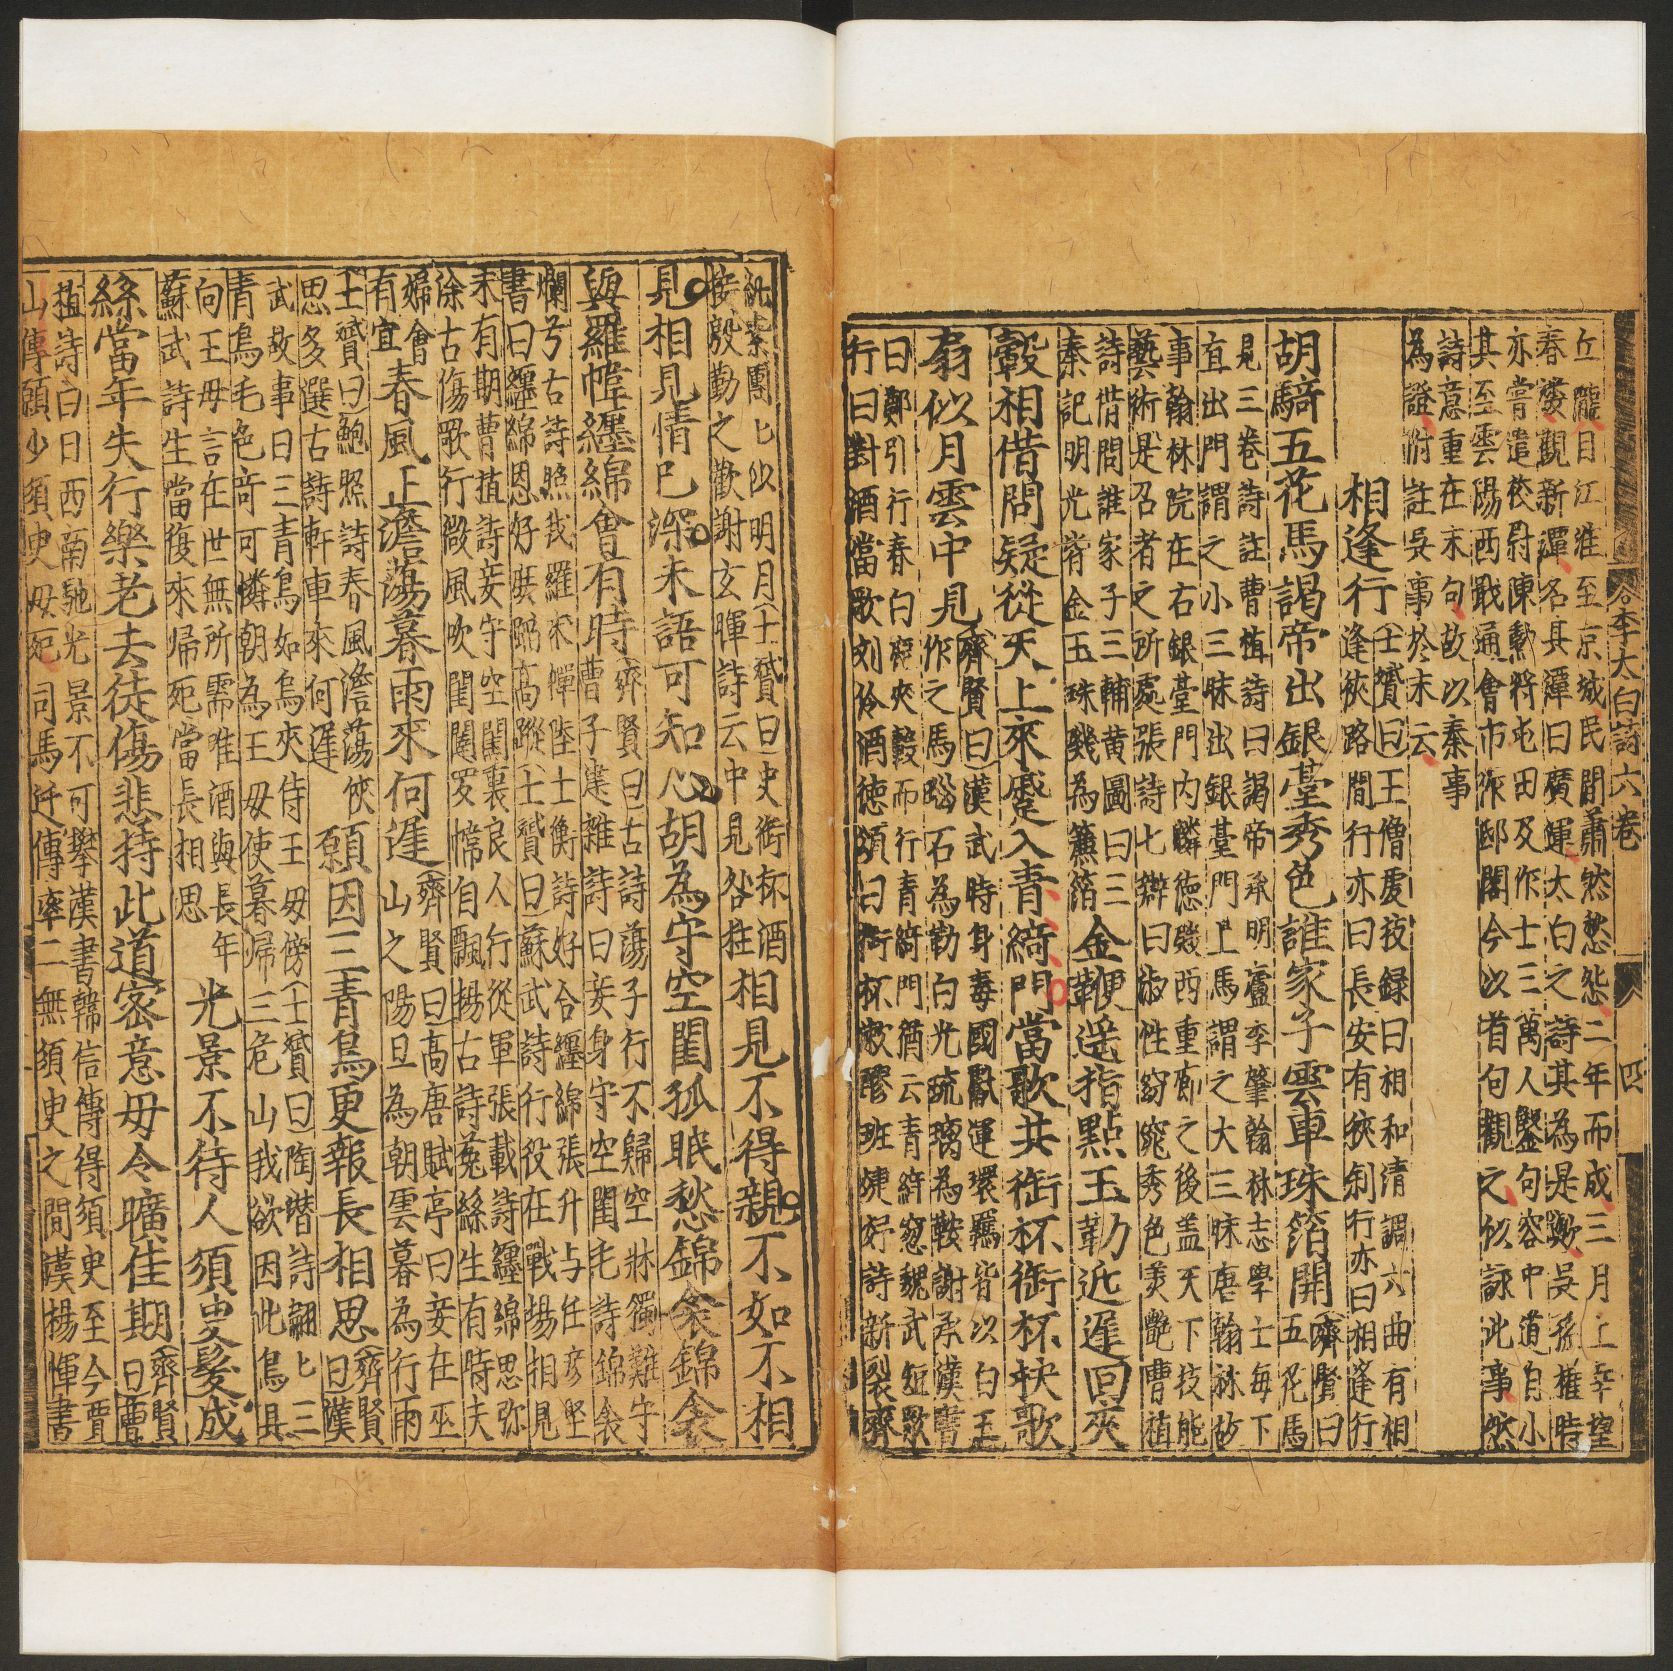 丘隴目江淮至京城民間蕭然愁怨二年而成三月上幸望
春𥩟觀新潭名其潭曰廣運太白之詩其為是歟吳孫權時
亦嘗遣校尉陳勳將屯田及作士三萬人鑿句容中道自小
其至雲陽西戰通會市作邸閣今以首句觀之似詠此事然
詩意重在末句故以秦事
為證附註吳事於末云
李太白詩六卷 四
相逢行
士贇曰王僧虔技録曰相和清調六曲有相
逢狹路間行亦曰長安有狹斜行亦曰相逢行
胡騎五花馬謁帝出銀臺秀色誰家子雲車珠箔開
齊賢曰
五花馬
見三卷詩註曹植詩曰謁帝承明廬李肇翰林志學士每下
直出門謂之小三昧出銀臺門上馬謂之大三昧唐翰林故
事翰林院在右銀臺門內麟德殿西重廊之後盖天下技能
藝術是召者之所處張詩七辯曰淑性窈窕秀色美艷曹植
詩借問誰家子三輔黄圖曰三
秦記明光宵金玉珠璣為簾箔
金鞭遥指點玉勒近遲回夾
轂相借問疑從天上來蹙入青綺門當歌共銜杯銜杯抉歌
扇似月雲中見
齊賢曰漢武時身毒國獻連環羈皆以白玉
作之馬瑙石為勒白光琉璃為鞍謝承漢書
曰鄭引行春白鹿夾轂而行青綺門猶云青綺窓魏武短歌
行曰對酒當歌刘伶酒德頌曰銜杯漱醪班婕妤詩新裂齊
紈素團匕似明月士贇曰史銜杯酒
接殷勤之歡謝玄暉詩云中見谷拄
相見不得親不如不相
見相見情已深未語可知心胡為守空閨孤眠愁錦衾錦衾
與羅幃纏綿會有時
齊賢曰古詩蕩子行不歸空牀獨難守
曹子建雜詩曰妾身守空閨毛詩錦衾
爛兮古詩照我羅床幃陸士衡詩好合纏綿張升与任彦坚
書曰纏綿恩好庶蹈高蹤士贇曰蘇武詩行役在戰塲相見
未有期曹植詩妾守空閨裏良人行從軍張載詩纏綿思弥
涂古傷歌行微風吹閨闥罗幃自飄揚古詩莵絲生有時夫
婦會
有宜
春風正澹蕩暮雨來何遲
齊賢曰高唐賦亭曰妾在巫
山之陽旦為朝雲暮為行雨
士贇曰鮑照詩春風澹蕩俠
思多選古詩軒車來何遲
願因三青鳥更報長相思
齊賢
曰漢
武故事曰三青鳥如烏夾侍王毋傍士贇曰陶㬱詩翩匕三
青鳥毛色奇可憐朝為王毋使暮歸三危山我欲因此鳥具
向王毋言在世無所需惟酒與長年
蘇武詩生當復來歸死當長相思
光景不待人須臾髮成
絲當年失行樂老去徒傷悲持此道密意毋令曠佳期
齊賢
曰曹
植詩白日西南馳光景不可攀漢書韓信傳得須臾至今賈
山傳願少須臾毋死司馬迁傳率二無須臾之間漢楊惲書